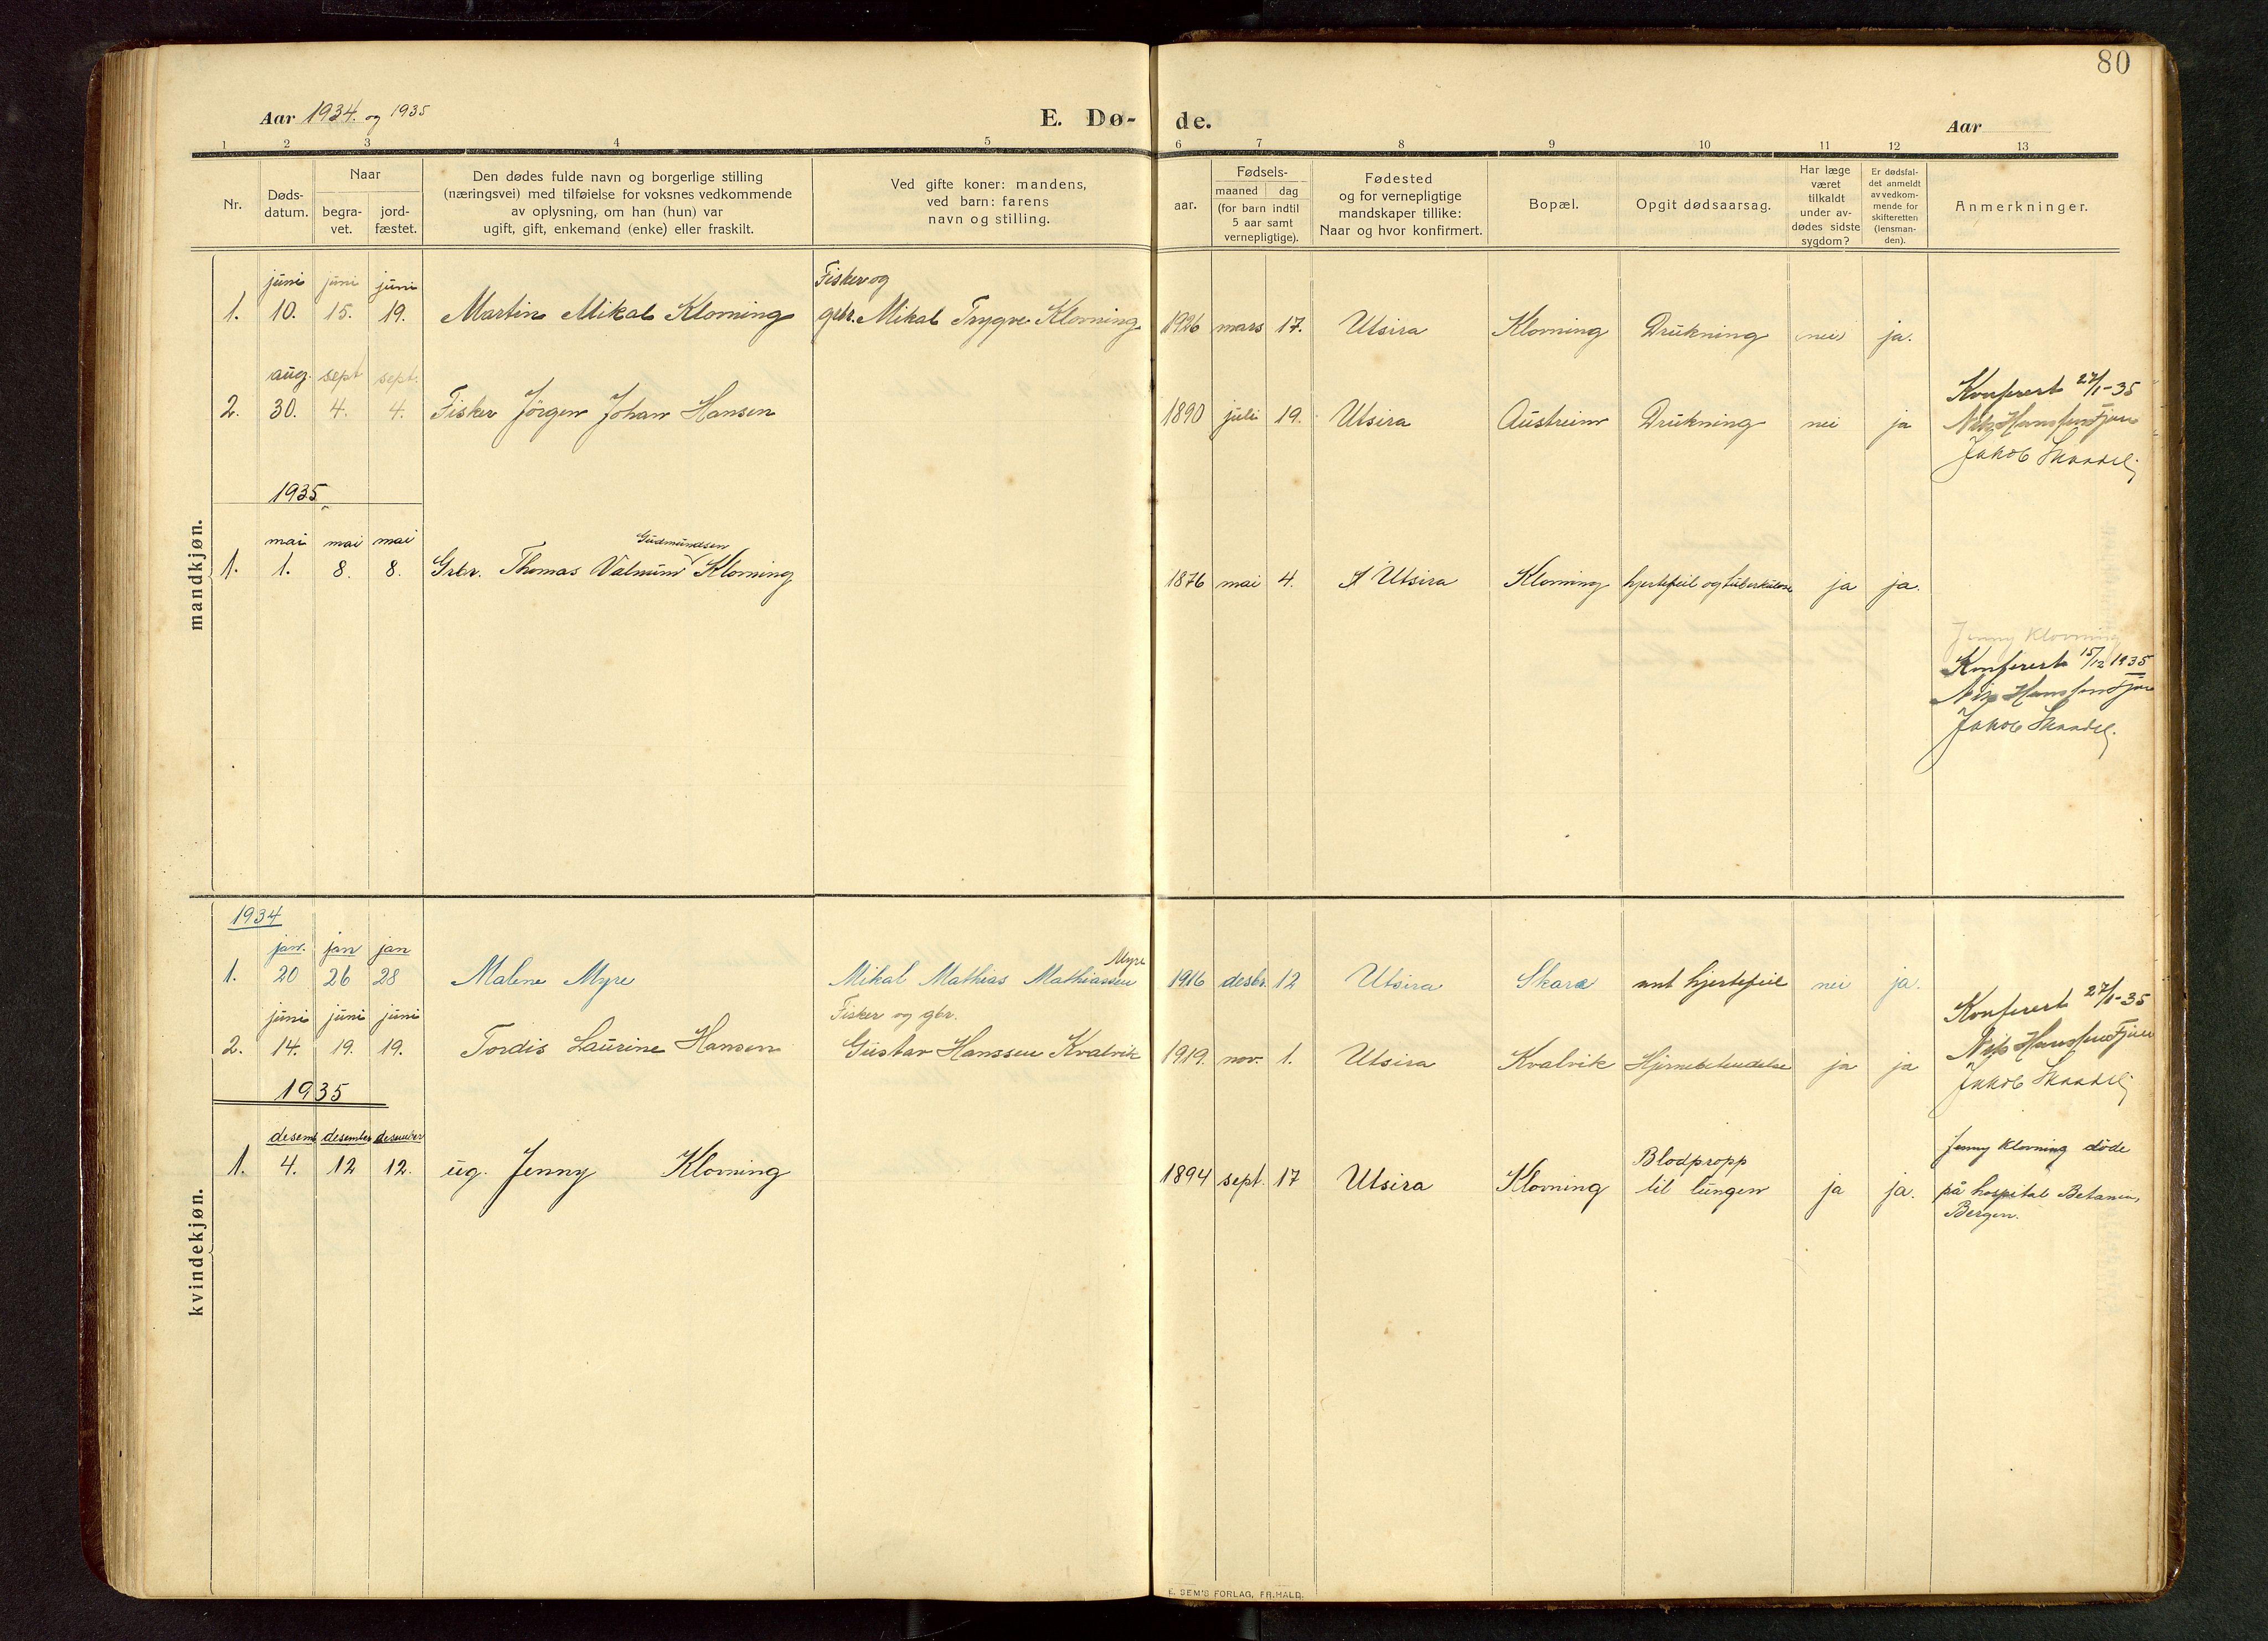 80
Aar 1934. og 1935
E. Dø- de.
Aar
1 2 3 4 5 6 7 8 9 10 11 12 13
Nr.
Døds-
datum.
Naar
begra-
vet.
jord-
fæstet.
Den dødes fulde navn og borgerlige stilling
(næringsvei) med tilføielse for voksnes vedkommende
av oplysning, om han (hun) var
ugift, gift, enkemand (enke) eller fraskilt.
Ved gifte koner: mandens,
ved barn: farens
navn og stilling.
aar.
Fødsels-
maaned dag
(for barn indtil
5 aar samt
vernepligtige).
Fødested
og for vernepligtige
mandskaper tillike:
Naar og hvor konfirmert.
Bopæl.
Opgit dødsaarsag.
Har læge
været
tilkaldt
under av-
dødes sidste
sygdom?
Er dødsfal-
det anmeldt
av vedkom-
mende for
skifteretten
(lensman-
den).
Anmerkninger.
mandkjøn.
juni juni juni Fisker og
1. 10. 15. 19. Martin Mikal Klovning gbr. Mikal Trygve Klovning 1926 mars 17. Utsira Klovning Drukning nei ja.
aug. sept sept.
2. 30. 4. 4. Fisker Jörgen Johan Hansen 1890 juli 19. Utsira Austreim Drukning nei ja
Konferert 27/1-35
Nils Hansen Fjære
Jakob Skaadel
1935
mai mai mai Gudmundsen
1. 1. 8. 8. Grbr. Thomas Valnum Klovning 1876 mai 4. Utsira Klovning hjertefeil og tuberkulose ja ja.
Jenny Klovning
Konferert 15/12 1935
Nils Hansen Fjære
Jakob Skaadel.
kvindekjøn.
1934
jan. jan jan Myre
1. 20 26 28 Malene Myre Mikal Mathias Mathiassen 1916 desbr. 12 Utsira Skare ant hjertefeil nei ja.
juni juni juni Fisker og gbr.
2. 14. 19. 19. Tordis Laurine Hansen Gustav Hanssen Kvalvik 1919. nov. 1. Utsira Kvalvik Hjernebetendelse ja ja
Konferert 27/1-35
Nils Hansen Fjære
Jakob Skaadel
1935
desem desember desember
1. 4. 12 12. ug. Jenny Klovning 1894 sept. 17 Utsira Klovning Blodpropp
til lungen ja ja.
Jenny Klovning döde
på hospital Betania,
Bergen.
E. SEM'S FORLAG, FR.HALD.